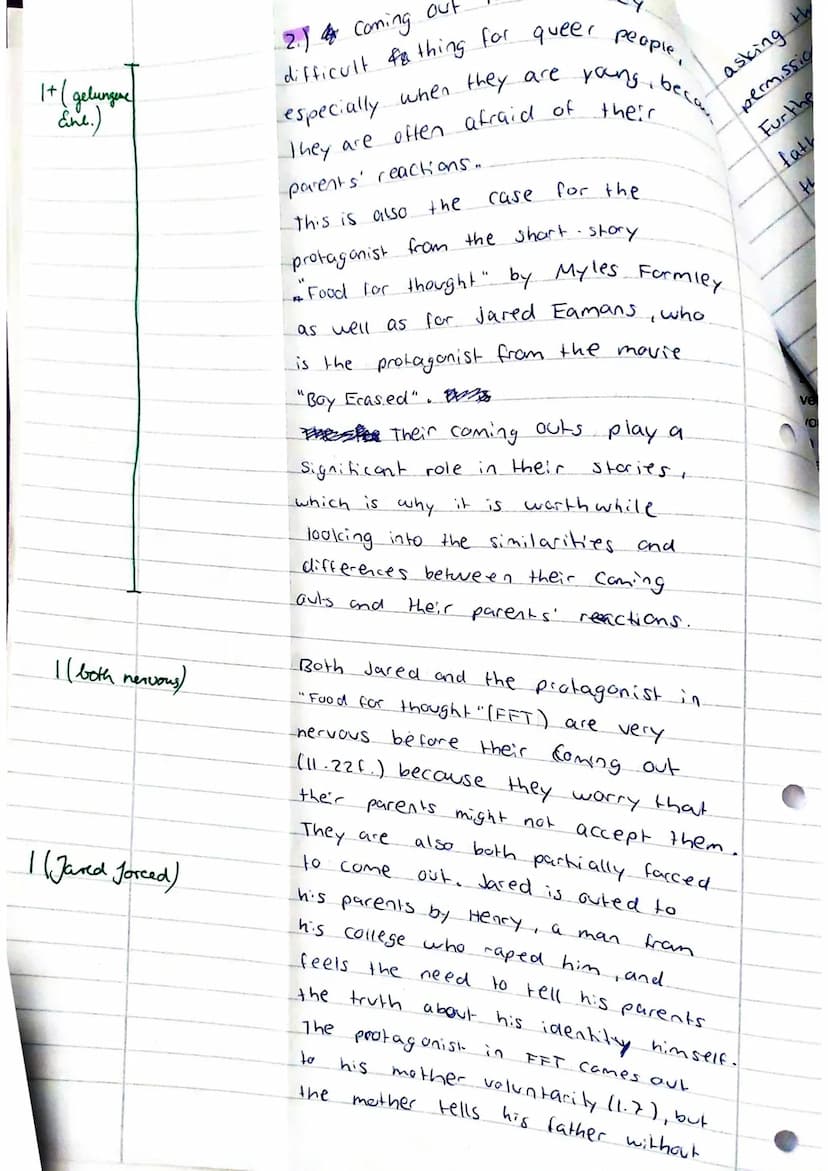 2.) Coming out
difficult thing for queer people,
especially when they are yang, beca
They are often afraid of their
parents' reactions.
This is also the case for the
protagonist from the short-story
"Food for thought" by Myles Formley
as well as for Jared Eamans, who
is the protagonist from the movie
"Boy Erased".
Their coming outs play a
significant role in their stories,
which is why it is worthwhile
looking into the similarities and
differences between their coming
outs and their parents' reactions.
Both Jared and the protagonist in
"Food for thought" (FFT) are very
nervous before their coming out
(ll. 22f.) because they worry that
their parents might not accept them.
They are also both partially forced
to come out. Jared is outed to
his parents by Henry, a man from
his college who raped him, and
feels the need to tell his parents
the truth about his identity himself.
The protagonist in FFT comes out
to his mother voluntarily (l.7), but
the mother tells his father without
1+ (gelungene
Einl.)
1 (both nervous)
1 (Jared forced)
asking th
permissio
Furthe
fath